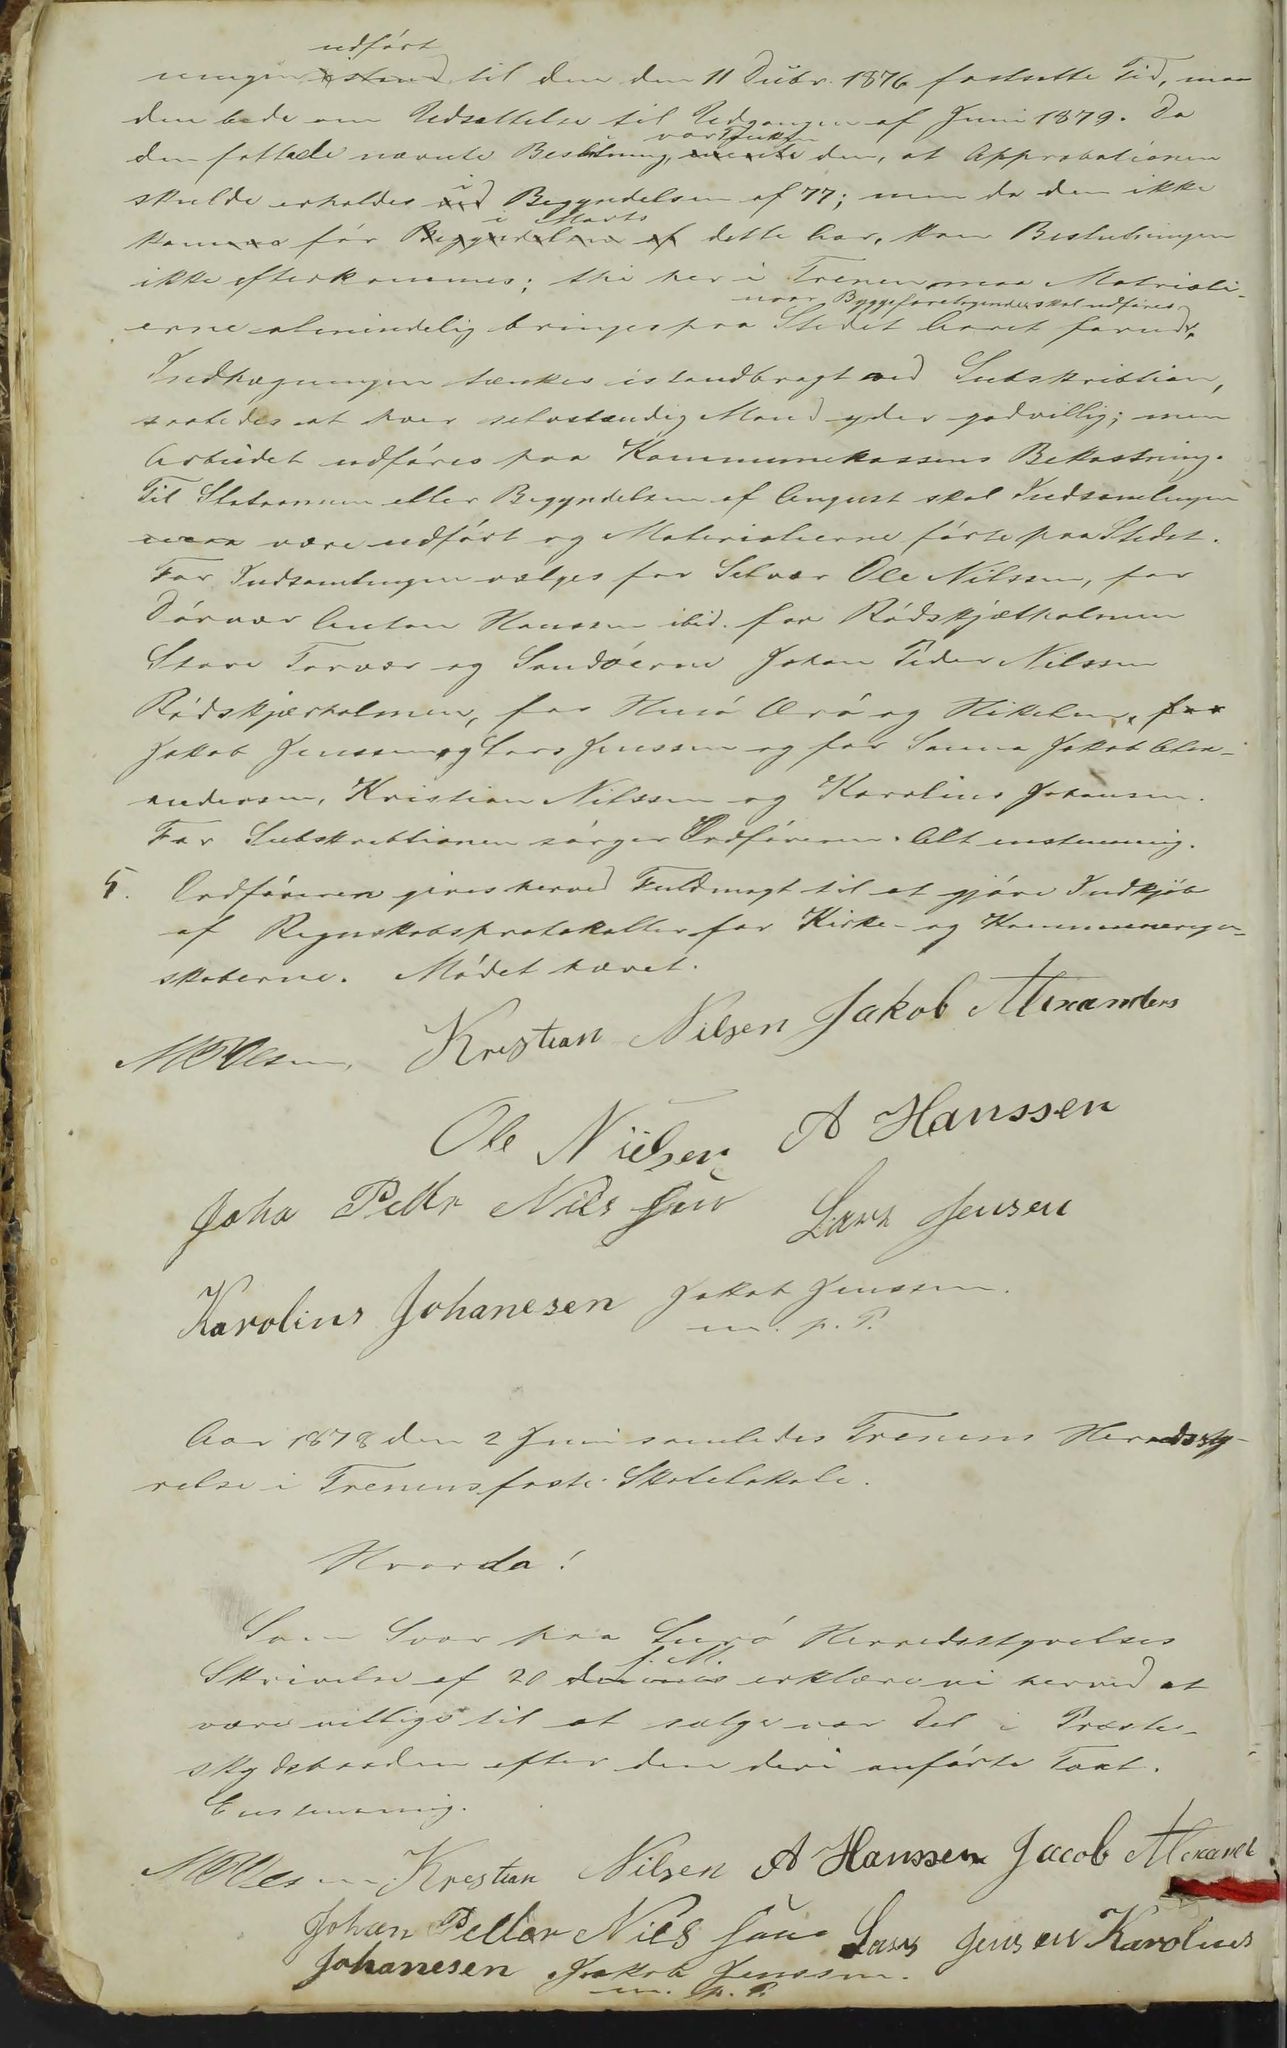 udført
ningen istand til den den 11 Decbr. 1876 fastsatte Tid, maa
den bede om Udsættelse til Udgangen af Juni 1879. Da
var Tanken
den fattede nævnte Beslutning, mente den, at Approbationen
i
skulde erholdes ved Begyndelsen af 77; men da den ikke
i Marts
kom før Begyndelsen af dette Aar, kan Beslutningen
ikke efterkommes; thi her i Trænen maa Materiali-
naar Byggeforetagender skal udføres
erne almindelig bringes paa Stedet Aaret forud.
Indhegningen tænkes istandbragt ved Subskribtion,
saaledes at hver selvstændig Mand yder godvillig; men
Arbeidet udføres paa Kommunekassens Bekostning.
Til Slutningen eller Begyndelsen af August skal Indsamlingen
være udført og Materialierne førte paa Stedet.
For Indsamlingen vælges for Selvær Ole Nilssen, for
Dørvær Anton Hanssen ibid. for Rødskjærholmen
Store Torvær og Sandøerne Johan Peder Nilssen
Rødskjærholmen, for Husø Ærø og Hikelen, for
Jakob Jenssen og Lars Jenssen og for Sanna Jakob Alex-
andersen, Kristian Nilssen og Karolius Johansen.
For Subskribtionen sørger Ordføreren. Alt enstemmig.
5. Ordføreren gives herved Fuldmagt til at gjøre Indkjøb
af Regnskabsprotokoller for Kirke- og Kommuneregn-
skaberne. Mødet hævet.
Kristian Nilsen Jakob Alexanders
Ole Nielsen A Hanssen
Joha Petter Nils Søn Lars Jensen
Karolius Johanesen Jakob Jenssen.
m. p. P.
Aar 1878 den 2 Juni samledes Trænens Herredssty-
relse i Trænens faste Skolelokale.
Hvorda!
Som Svar paa Lurø Herredsstyrelses
f. M.
Skrivelse af 20 erklære vi herved at
være villige til at sælge vor Del i Præste-
skydsbaaden efter den deri anførte Taxt.
Enstemmig.
Kristian Nilsen A Hanssen Jacob Alexand
Johan Petter Nils Søn Lars Jensen Karolius
Johanesen Jakob Jenssen.
m. p. P.